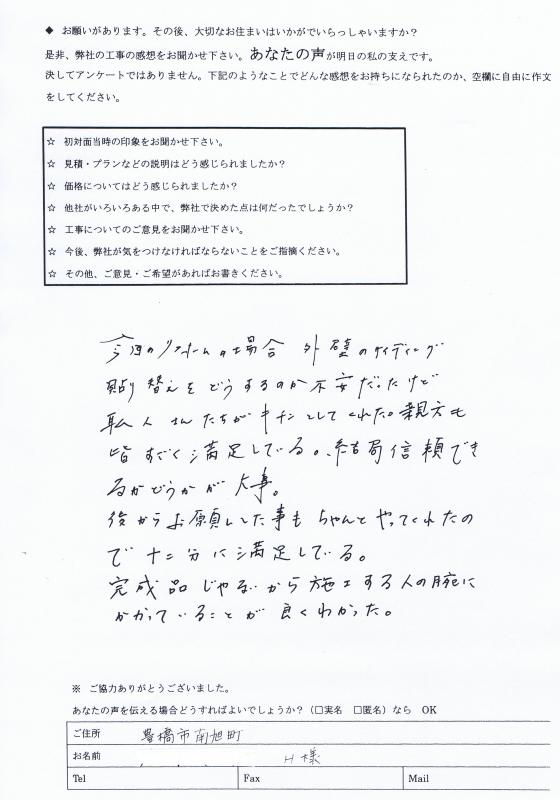 ◆ お願いがあります。その後、大切なお住まいはいかがでいらっしゃいますか？
是非、弊社の工事の感想をお聞かせ下さい。あなたの声が明日の私の支えです。
決してアンケートではありません。下記のようなことでどんな感想をお持ちになられたのか、空欄に自由に作文
をしてください。
☆ 初対面当時の印象をお聞かせ下さい。
☆ 見積・プランなどの説明はどう感じられましたか？
☆ 価格についてはどう感じられましたか？
☆ 他社がいろいろある中で、弊社で決めた点は何だったでしょうか？
☆ 工事についてのご意見をお聞かせ下さい。
☆ 今後、弊社が気をつけなければならないことをご指摘ください。
☆ その他、ご意見・ご希望があればお書きください。
今回のリフォームの場合 外壁のサイディング
貼り替えをどうするのか不安だったけど
職人さんたちがキチンとしてくれた。親方も
皆すごく満足している。結局信頼でき
るかどうかが大事。
後からお願いした事も ちゃんとやってくれたの
で十二分に満足している。
完成品じゃないから施工する人の腕に
かかっていることが良くわかった。
※ ご協力ありがとうございました。
あなたの声を伝える場合どうすればよいでしょうか？（□実名 □匿名）なら OK
ご住所 豊橋市南旭町
お名前 H様
Tel Fax Mail